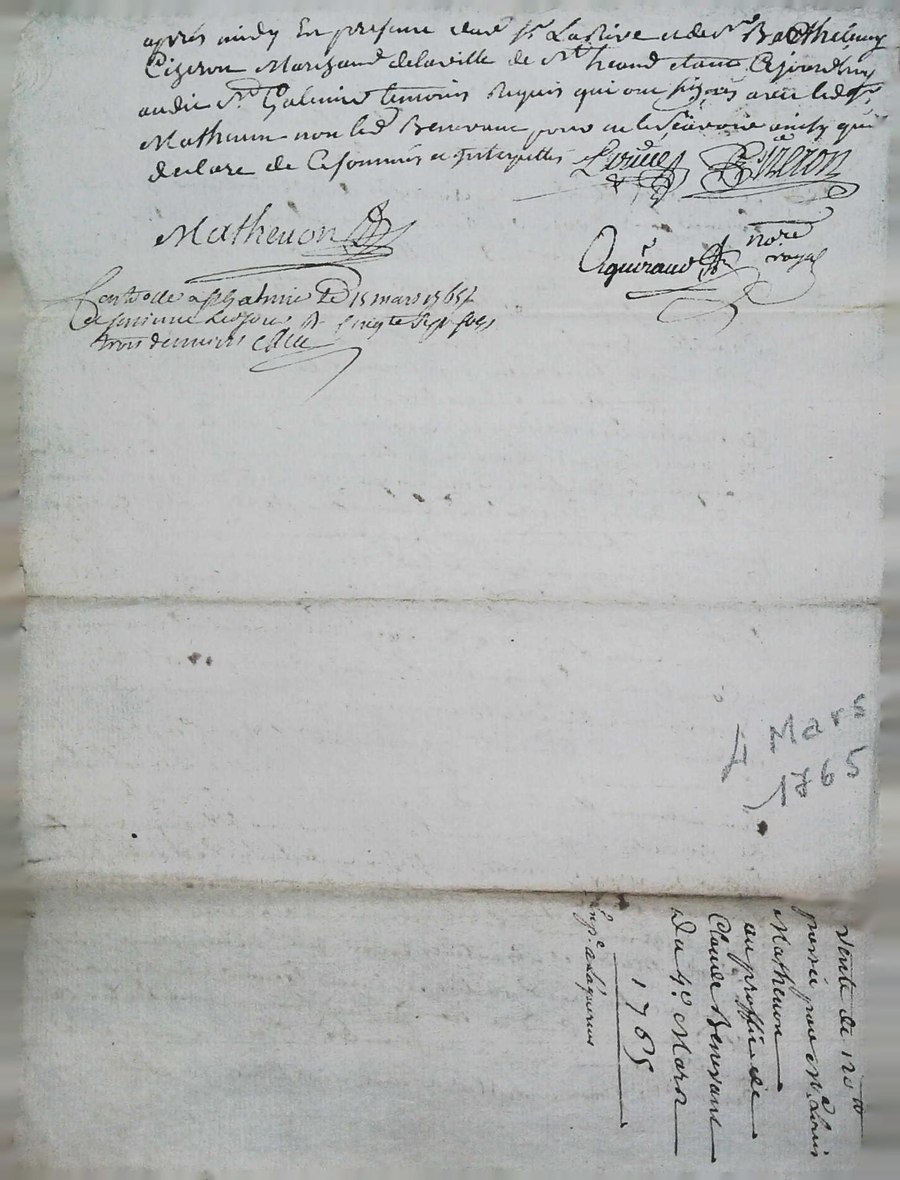 après midy En presence de Sr Larive et de Sr Barthelemy
Cizeron Marchand de la ville de St heand etant Cejourdhuy
audit St Galmier temoins Requis qui ont signés avec led Sr
Mathevon non led Benevant pour ne le scavoir ainsy quil
declare de Ce sommés et interpellés
Larive Cizeron
Mathevon
nore
royal
Controllé a St Galmier Le 15 mars 1765
trois deniers
4 Mars
1765
Vente de 120
passée par Me Louis
Mathevon
au proffit de
Claude Benevant
Du 4e Mars
1765